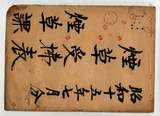 昭和十五年七月分
煙草受拂表
煙草課